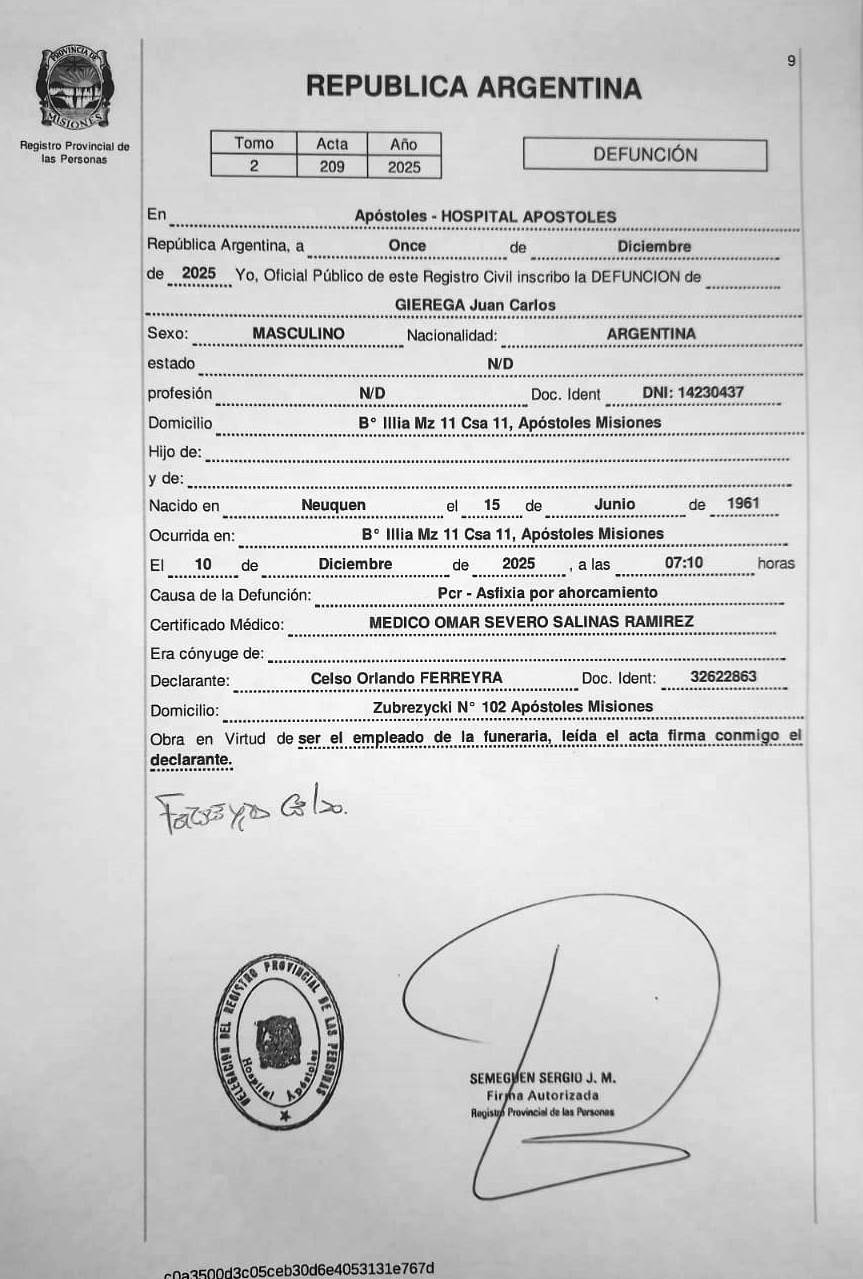 9
PROVINCIA DE
MISIONES
Registro Provincial de
las Personas
REPUBLICA ARGENTINA
Tomo Acta Año
2 209 2025
DEFUNCIÓN
En Apóstoles - HOSPITAL APOSTOLES
República Argentina, a Once de Diciembre
de 2025 Yo, Oficial Público de este Registro Civil inscribo la DEFUNCION de
GIEREGA Juan Carlos
Sexo: MASCULINO Nacionalidad: ARGENTINA
estado N/D
profesión N/D Doc. Ident DNI: 14230437
Domicilio B° Illia Mz 11 Csa 11, Apóstoles Misiones
Hijo de:
y de:
Nacido en Neuquen el 15 de Junio de 1961
Ocurrida en: B° Illia Mz 11 Csa 11, Apóstoles Misiones
El 10 de Diciembre de 2025 , a las 07:10 horas
Causa de la Defunción: Pcr - Asfixia por ahorcamiento
Certificado Médico: MEDICO OMAR SEVERO SALINAS RAMIREZ
Era cónyuge de:
Declarante: Celso Orlando FERREYRA Doc. Ident: 32622863
Domicilio: Zubrezycki N° 102 Apóstoles Misiones
Obra en Virtud de ser el empleado de la funeraria, leída el acta firma conmigo el
declarante.
DELEGACION DEL REGISTRO PROVINCIAL DE LAS PERSONAS
Hospital Apóstoles
SEMEGUEN SERGIO J. M.
Firma Autorizada
Registro Provincial de las Personas
c0a3500d3c05ceb30d6e4053131e767d